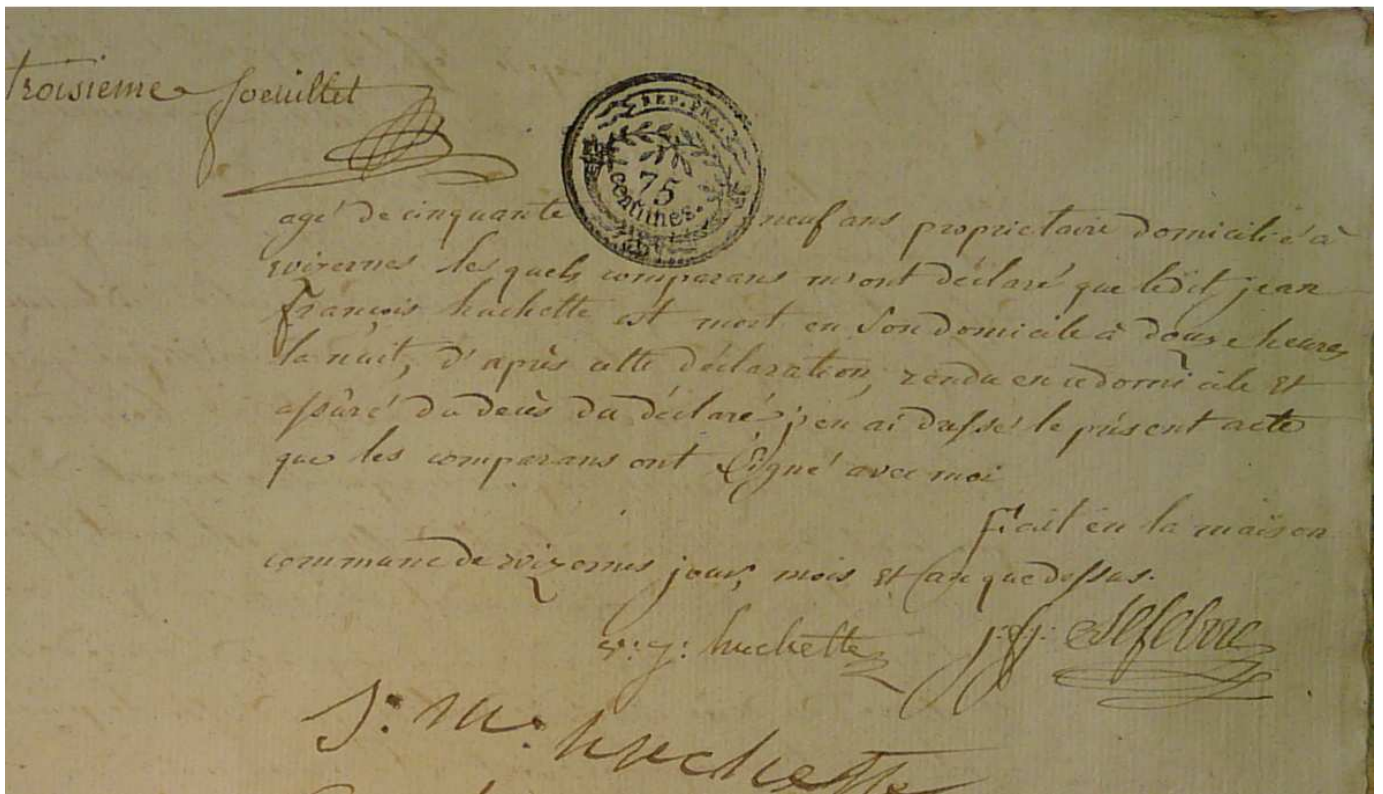 troisieme foeuillet
REP. FRA.
75
centimes.
agé de cinquante neuf ans proprietaire domicilié à
wizernes les quels comparans m'ont déclaré que ledit jean
françois huchette est mort en son domicile à douze heures
la nuit, d'après cette déclaration, rendu en ce domicile et
assuré du decès du déclaré j'en ai dressé le présent acte
que les comparans ont signé avec moi
fait en la maison
commune de wizernes jour, mois et an que dessus.
huchette j: f: Lefebvre
J: M: huchette